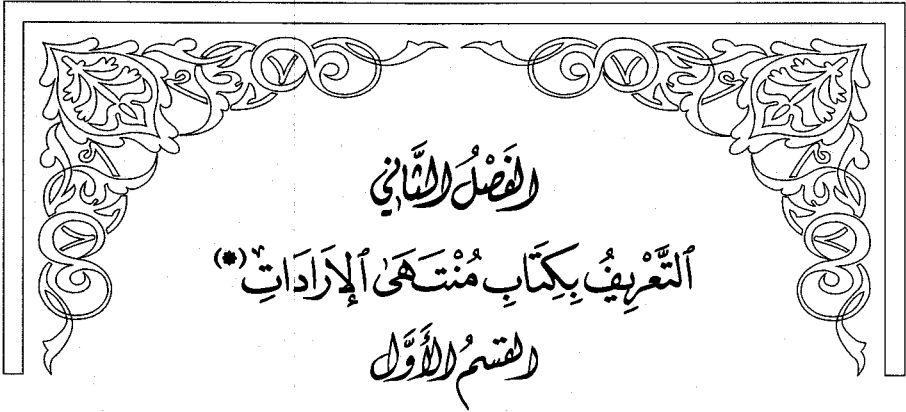 الفَصْلُ الثَّانِي
ٱلتَّعْرِيفُ بِكِتَابِ مُنْتَهَىٰ ٱلإِرَادَاتِ (*)
القِسْمُ الأَوَّل